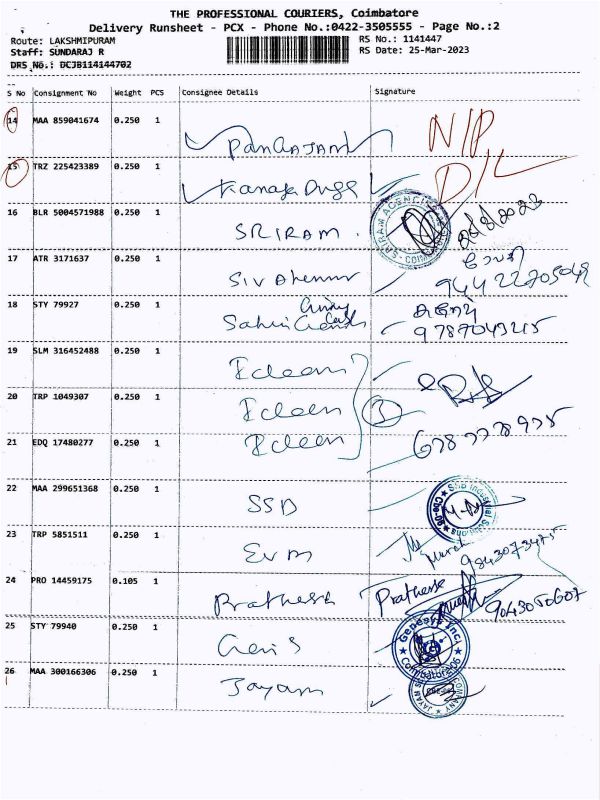 THE PROFESSIONAL COURIERS, Coimbatore
Delivery Runsheet - PCX - Phone No.:0422-3505555 - Page No.:2
Route: LAKSHMIPURAM RS No.: 1141447
Staff: SUNDARAJ R RS Date: 25-Mar-2023
DRS No.: DCJB114144702
S No Consignment No Weight PCS Consignee Details Signature
14 MAA 859041674 0.250 1 N/P
15 TRZ 225423389 0.250 1 D/L
16 BLR 5004571988 0.250 1 SRIRAM.
17 ATR 3171637 0.250 1
18 STY 79927 0.250 1 9787043215
19 SLM 316452488 0.250 1 Eclean
20 TRP 1049307 0.250 1 Eclean 3
21 EDQ 17480277 0.250 1 Eclean
22 MAA 299651368 0.250 1 SSD
23 TRP 5851511 0.250 1 EVM 9843073475
24 PRO 14459175 0.105 1 Prathessh Prathessh 9043050607
25 STY 79940 0.250 1 Genesys Inc. Coimbatore
26 MAA 300166306 0.250 1 Jayam